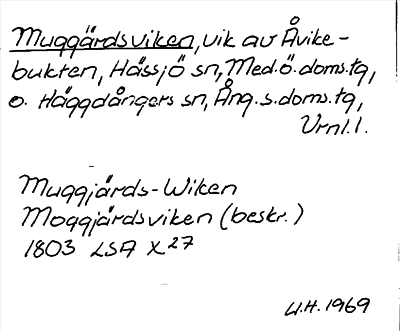 Muggärdsviken, vik av Åvike-
bukten, Hässjö sn, Med.ö.doms.tg,
o. Häggdångers sn, Ång.s.doms.tg,
Vrnl.l.
Muggjårds-Wiken
Moggjårdsviken (beskr.)
1803 LSA X27
U.H. 1969